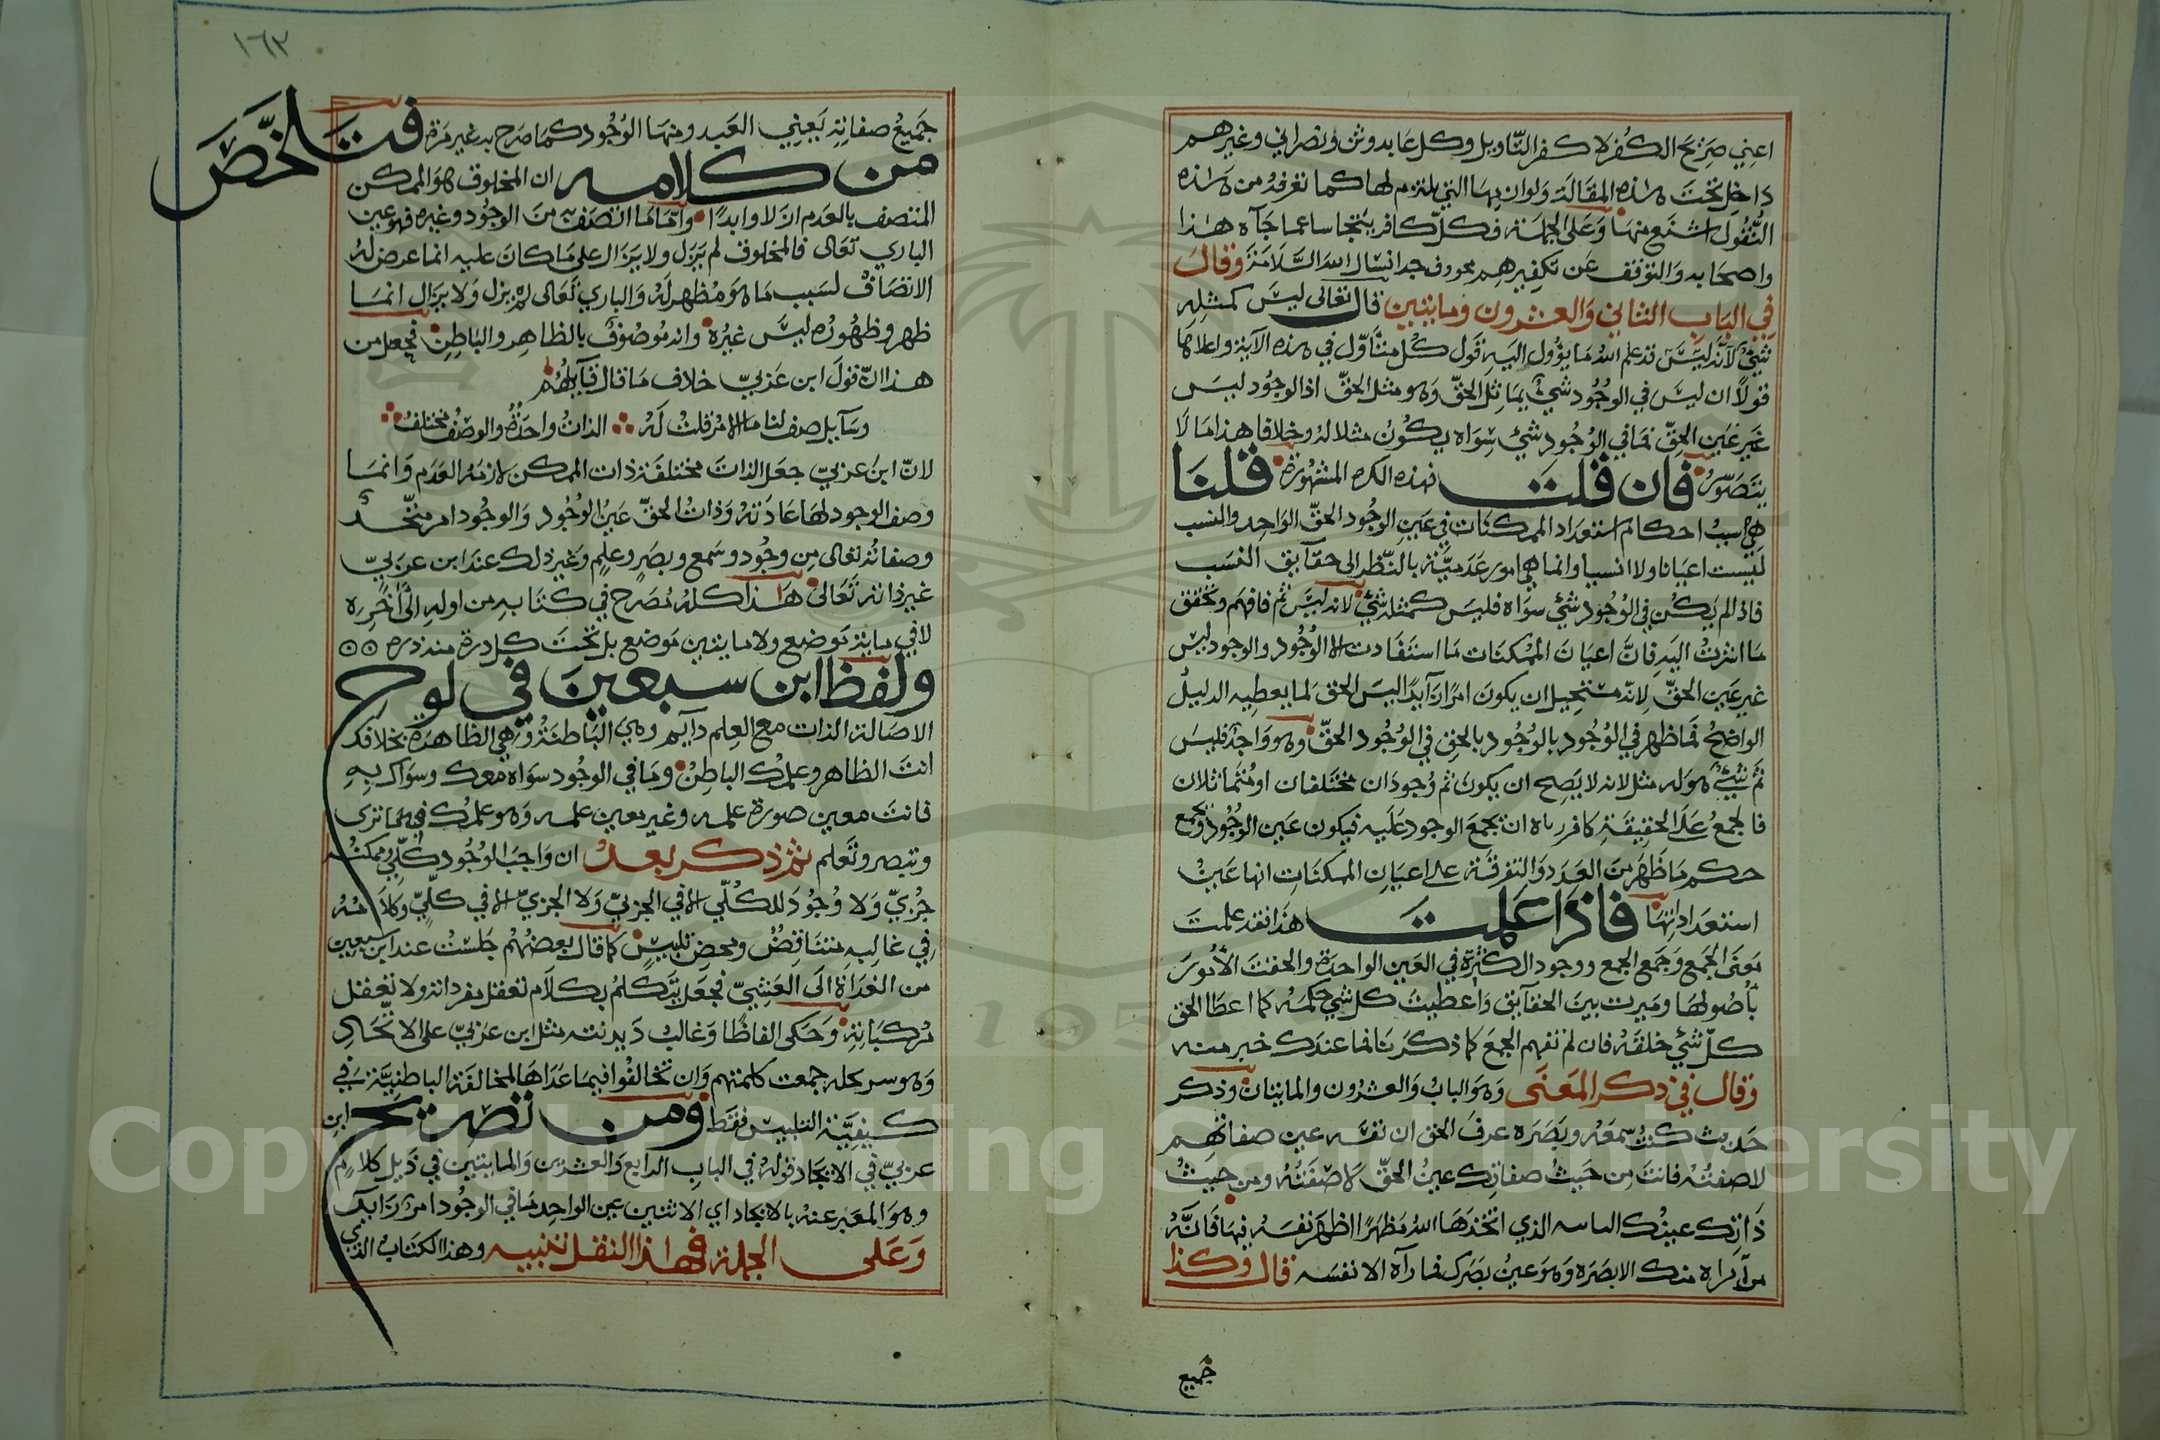 اعني صريح الكفر لا كفر التاويل وكل عابد وثن ونصراني وغيرهم
داخل تحت هذه المقالة ولوازمها التي يلتزم لها كما تعرفه من هذه
النقول اشنع منها وعلى الجملة فكل كافر يتحاسا عما جآء هذا
واصحابه والتوقف عن تكفيرهم نسال الله السلامة وقال
في الباب الثاني والعشرون ومايتين قال تعالى ليس كمثله
شيء لانه ليس قد علم الله ما يؤول اليه قول كل متاول في هذه الآية واعلاها
قولا ان ليس في الوجود شيء يماثل الحق وهو مثل الحق اذ الوجود ليس
غير عين الحق فما في الوجود شيء سواه يكون مثلا له وخلافا هذا ما لا
يتصور فان قلت فهذه الكثرة المشهورة قلنا
هي نسب احكام استعداد الممكنات في عين الوجود الحق الواحد والنسب
ليست اعيانا ولا اشيا وانما هي امور عدمية بالنظر الى حقآيق النسب
فاذا لم يكن في الوجود شيء سواه فليس كمثله شيء لانه ليس ثم فافهم وتحقق
ما اشرت اليه فان اعيان الممكنات ما استفادت الا الوجود والوجود ليس
غير عين الحق لانه مستحيل ان يكون امرا زآيدا ليس الحق لما يعطيه الدليل
الواضح فما ظهر في الوجود بالوجود بالحق في الوجود الحق وهو واحد فليس
ثم شيء هو له مثل لانه لا يصح ان يكون ثم وجودان مختلفان او متماثلان
فالجمع على الحقيقة كما قررناه ان تجمع الوجود عليه فيكون عين الوجود وتجمع
حكم ما ظهر من العدد والتفرقة على اعيان الممكنات انها عين
استعداداتها فاذا علمت هذا فقد علمت
معنى الجمع وجمع الجمع ووجود الكثرة في العين الواحدة والحقت الامور
باصولها وميزت بين الحقآيق واعطيت كل شيء حكمه كما اعطا الحق
كل شيء خلقه فان لم تفهم الجمع كما ذكرنا فما عندك خبر منه
وقال في ذكر المعنى وهو الباب والعشرون والمايتان وذكر
حديث كنت سمعه وبصره عرف الحق ان نفسه عين صفاتهم
لا صفته فانت من حيث صفاتك عين الحق لا صفته ومن حيث
ذاتك عينك الذي اتخذها الله مظهرا اظهر نفسه فيها فانه
ما يراه منك الا بصره وهو عين بصرك فما رآه الا نفسه قال وكذا
جميع
١٦٢
جميع صفاته يعني العبد ومنها الوجود كما صرح به غير مرة فتلخص
من كلامه ان المخلوق هو الممكن
المتصف بالعدم ازلا وابدا واما ما اتصف به من الوجود وغيره فهو عين
الباري تعالى فالمخلوق لم يزل ولا يزال على ما كان عليه انما عرض له
الاتصاف لسبب ما هو مظهر له والباري تعالى لم يزل ولا يزال انما
ظهر وظهوره ليس غيره وانه موصوف بالظاهر والباطن فجعل من
هذا ان قول ابن عربي خلاف ما قال قآيلهم
وسآيل صف لنا ما الامر قلت له الذات واحدة والوصف مختلف
لان ابن عربي جعل الذات مختلفة ذات الممكن لازمه العدم وانما
وصف الوجود لها عادته وذات الحق عين الوجود والوجود امر متحد
وصفاته تعالى من وجود وسمع وبصر وعلم وغير ذلك عند ابن عربي
غير ذاته تعالى هذا كله مصرح في كتابه من اوله الى آخره
لا في ماية موضع ولا مايتين موضع بل تحت كل درة منه ذره
ولفظ ابن سبعين في لوح
الاصالة الذات مع العلم دآيم وهي الباطنة وهي الظاهرة بخلافك
انت الظاهر وعلمك الباطن وما في الوجود سواه معك وسواك به
فانت معين صورة علمه وغير معين علمه وهو علمك فيما ترى
وتبصر وتعلم ثم ذكر بعد ان واجب الوجود كلي وممكنه
جزي ولا وجود للكلي الا في الجزي ولا الجزي الا في كلي وكلامه
في غالبه متناقض ومحض تلبيس كما قال بعضهم جلست عند ابن سبعين
من الغداة الى العشي فجعل يتكلم بكلام تعقل مفرداته ولا تعقل
مركباته وحكى الفاظا وغالب ديدنته مثل ابن عربي على الاتحاد
وهو سر نحله جمعت كلمتهم وان تخالفوا فيما عداها لمخالفة الباطنية في
كيفية التلبيس فقط ومن تصريح ابن
عربي في الاتحاد قوله في الباب الرابع والعشرين والمايتين في ذيل كلام
وهو المعبر عنه بالاتحاد اي الاثنين عين الواحد ما في الوجود امر زايد
وعلى الجملة فهذا النقل تنبيه وهذا الكتاب الذي
Copyright © King Saud University
1957